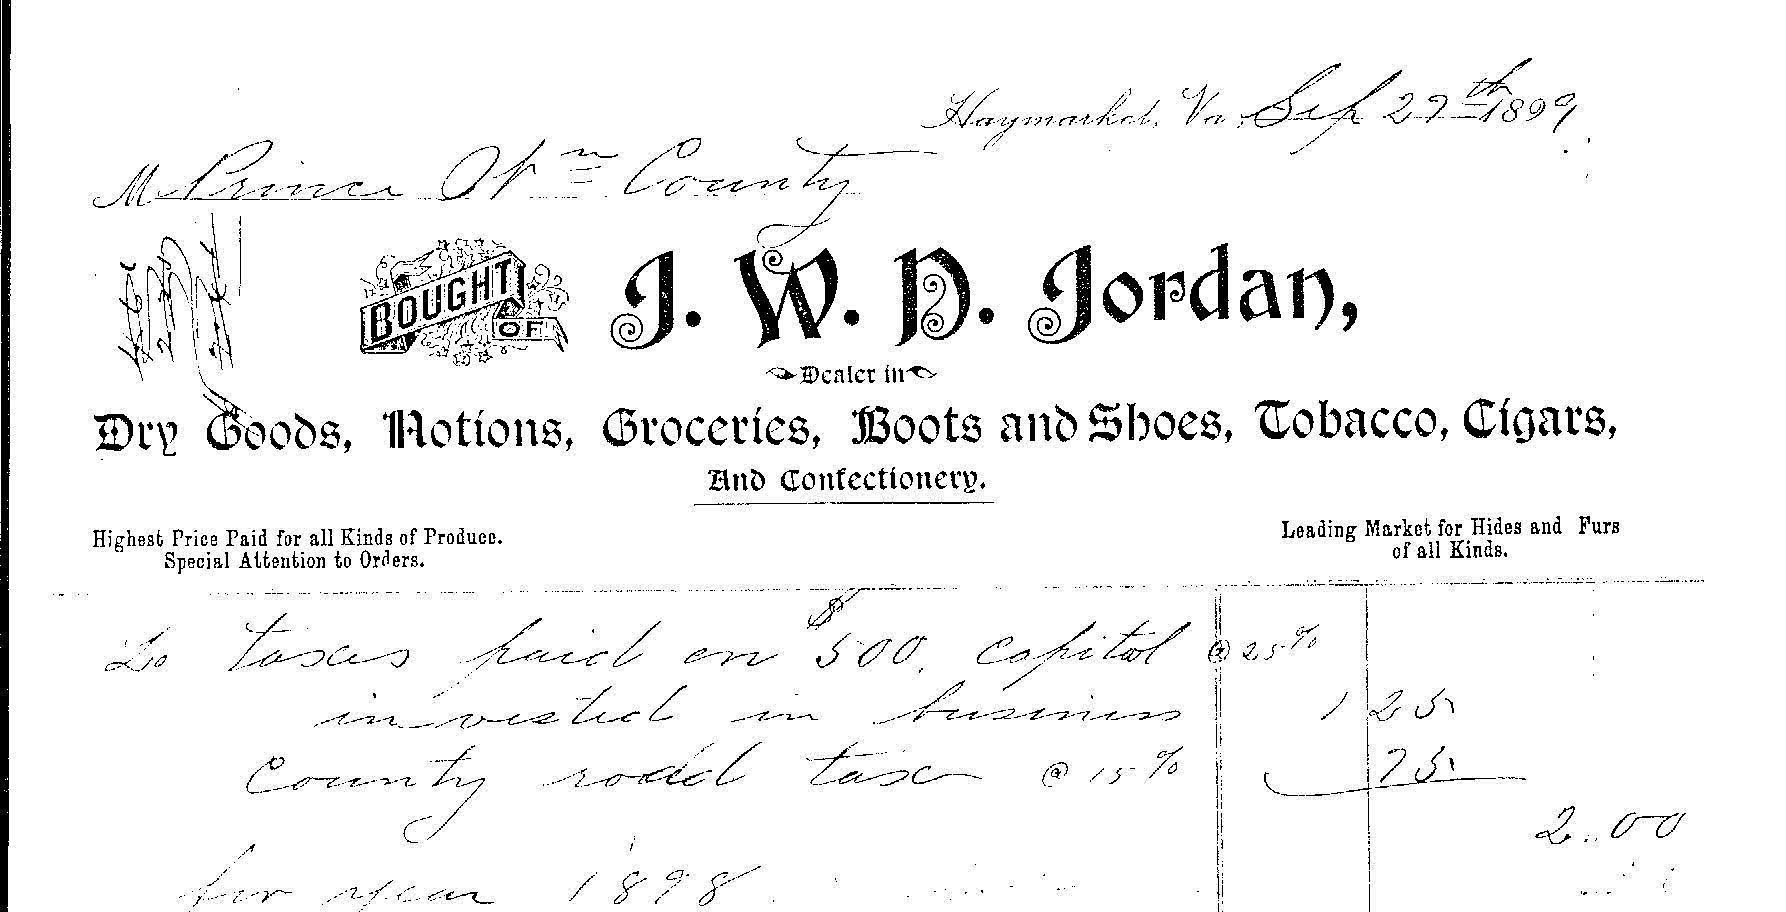 Haymarket, Va. Sep 29th 1899
M Prince Wm County
BOUGHT OF J. W. D. Jordan,
Dealer in
Dry Goods, Notions, Groceries, Boots and Shoes, Tobacco, Cigars,
And Confectionery.
Highest Price Paid for all Kinds of Produce.
Special Attention to Orders.
Leading Market for Hides and Furs
of all Kinds.
To taxes paid on $500, capitol @ 25%
invested in business 1 25
County road tax @ 15% 75
2.00
for year 1898